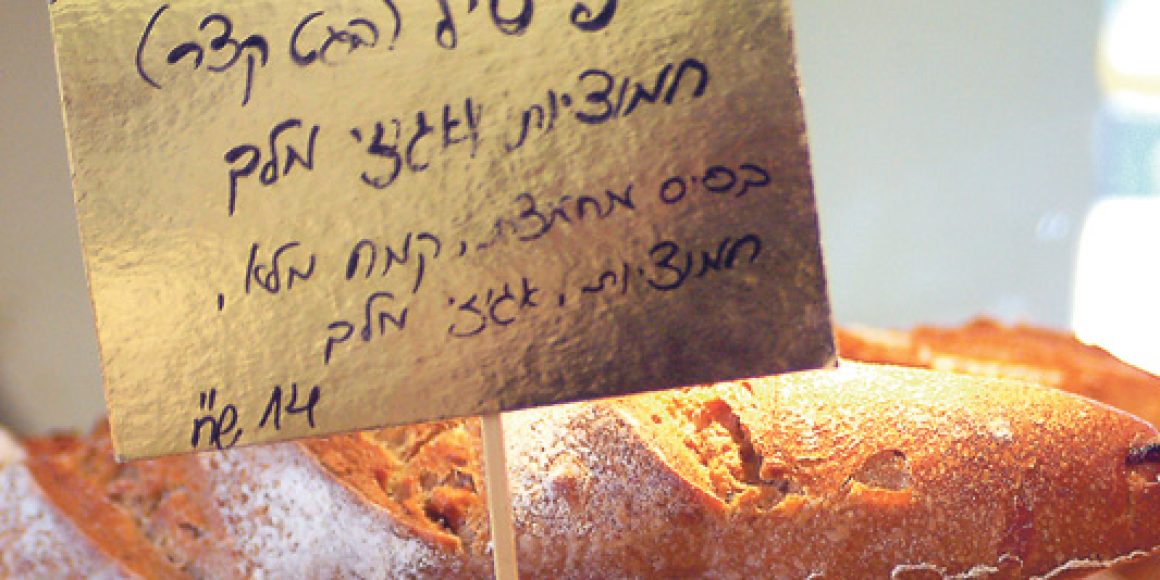 (בגט קצר)
חמוציות ואגוזי מלך
בסיס מחמצת, קמח מלא,
חמוציות, אגוזי מלך
14 ש"ח